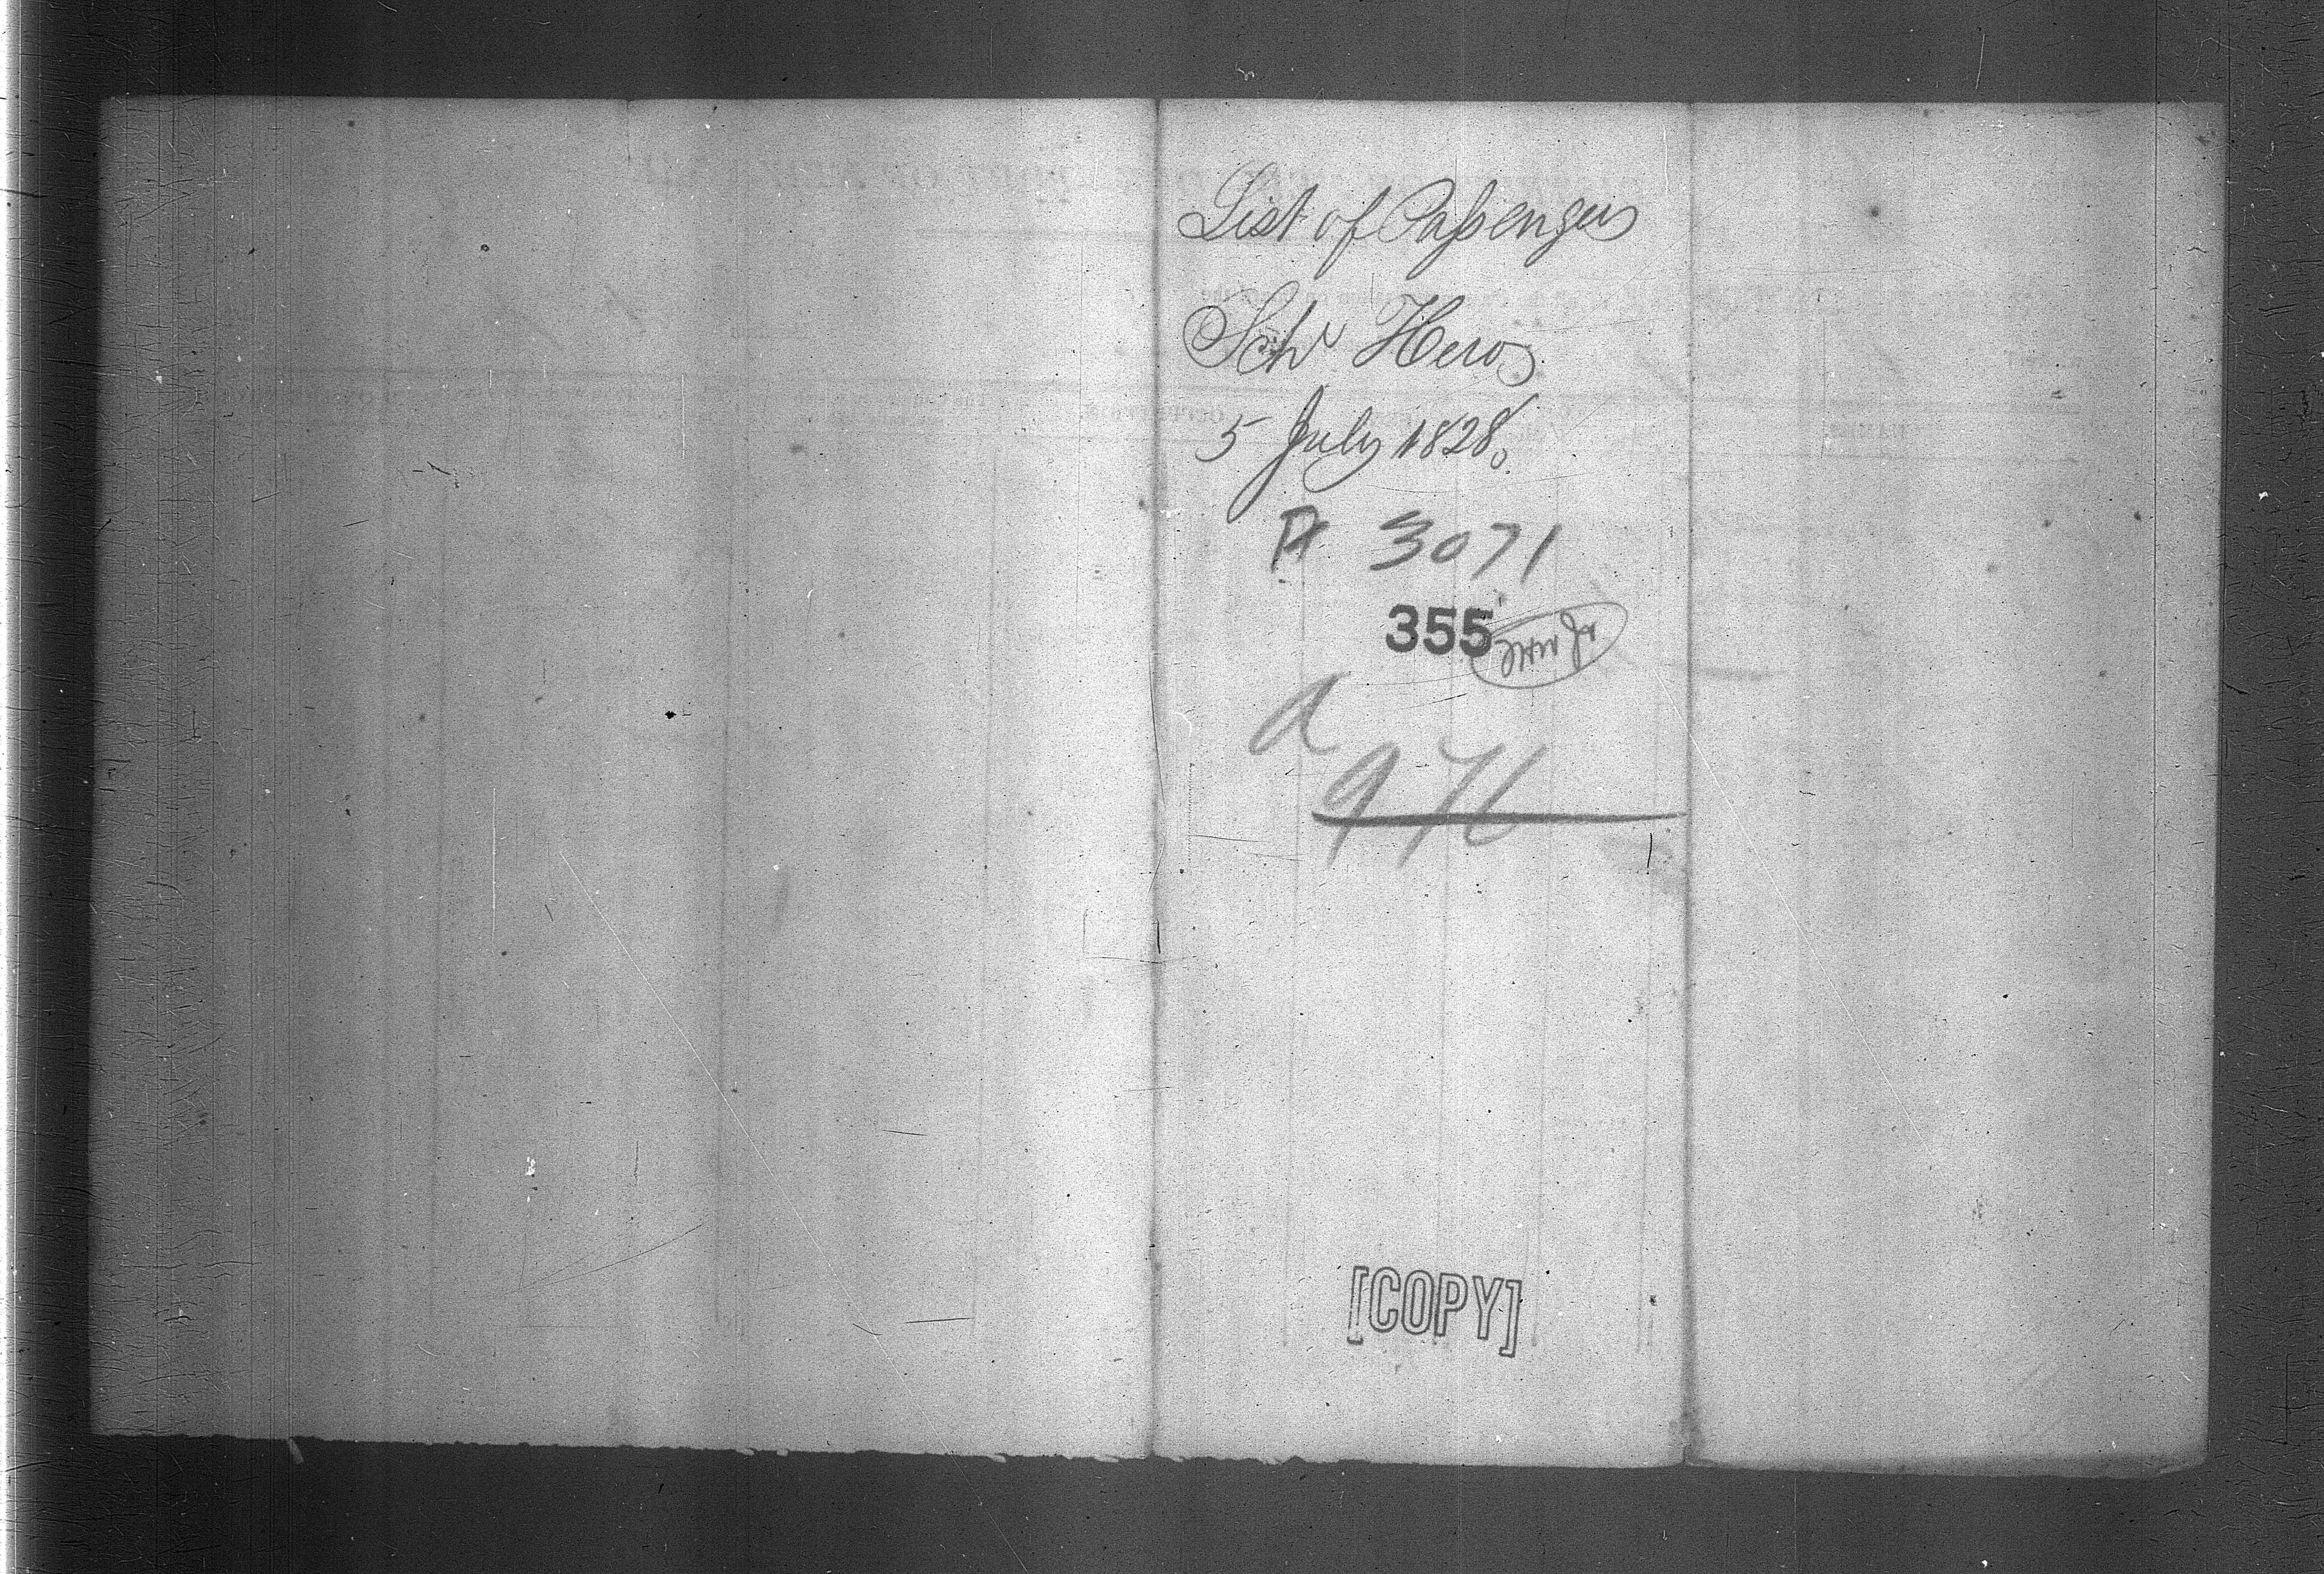 List of Passengers
Schr Hero
5 July 1828.
A 3071
355
a
976
[COPY]